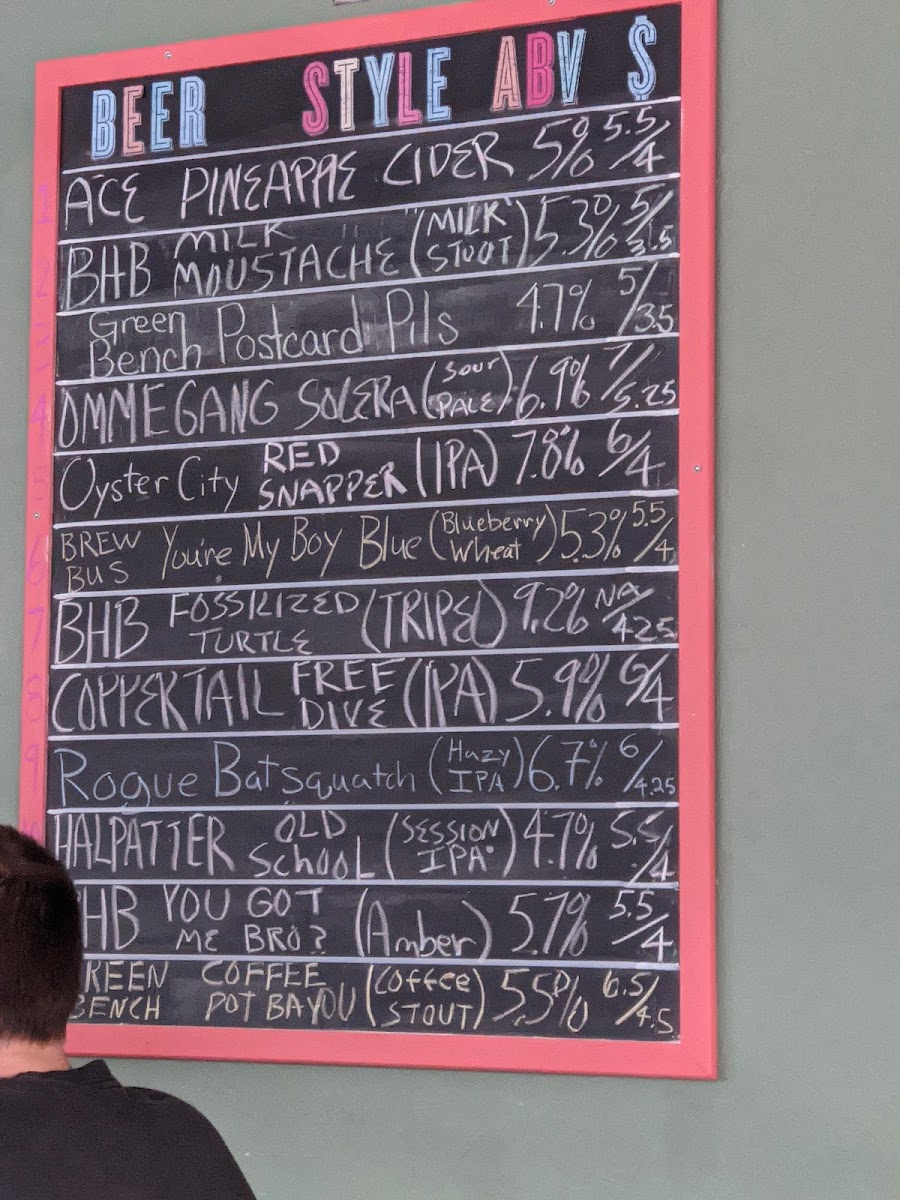 BEER STYLE ABV $
1 ACE PINEAPPLE CIDER 5% 5.5/4
2 BHB MILK MOUSTACHE (MILK STOUT) 5.3% 5/3.5
3 Green Bench Postcard Pils 4.7% 5/3.5
4 OMMEGANG SOLERA (SOUR PALE) 6.9% 7/5.25
5 Oyster City RED SNAPPER (IPA) 7.8% 6/4
6 BREW BUS You're My Boy Blue (Blueberry Wheat) 5.3% 5.5/4
7 BHB FOSSILIZED TURTLE (TRIPEL) 9.2% NA/4.25
8 COPPERTAIL FREE DIVE (IPA) 5.9% 6/4
9 Rogue Batsquatch (Hazy IPA) 6.7% 6/4.25
HALPATTER OLD SCHOOL (SESSION IPA) 4.7% 5.5/4
HB YOU GOT ME BRO? (Amber) 5.7% 5.5/4
REEN BENCH COFFEE POT BAYOU (Coffee STOUT) 5.5% 6.5/4.5